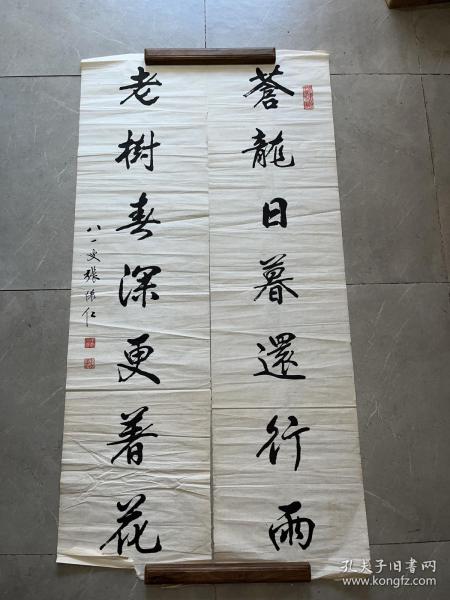 蒼龍日暮還行雨
老樹春深更著花
八一叟張
仁
孔夫子旧书网
www.kongfz.com